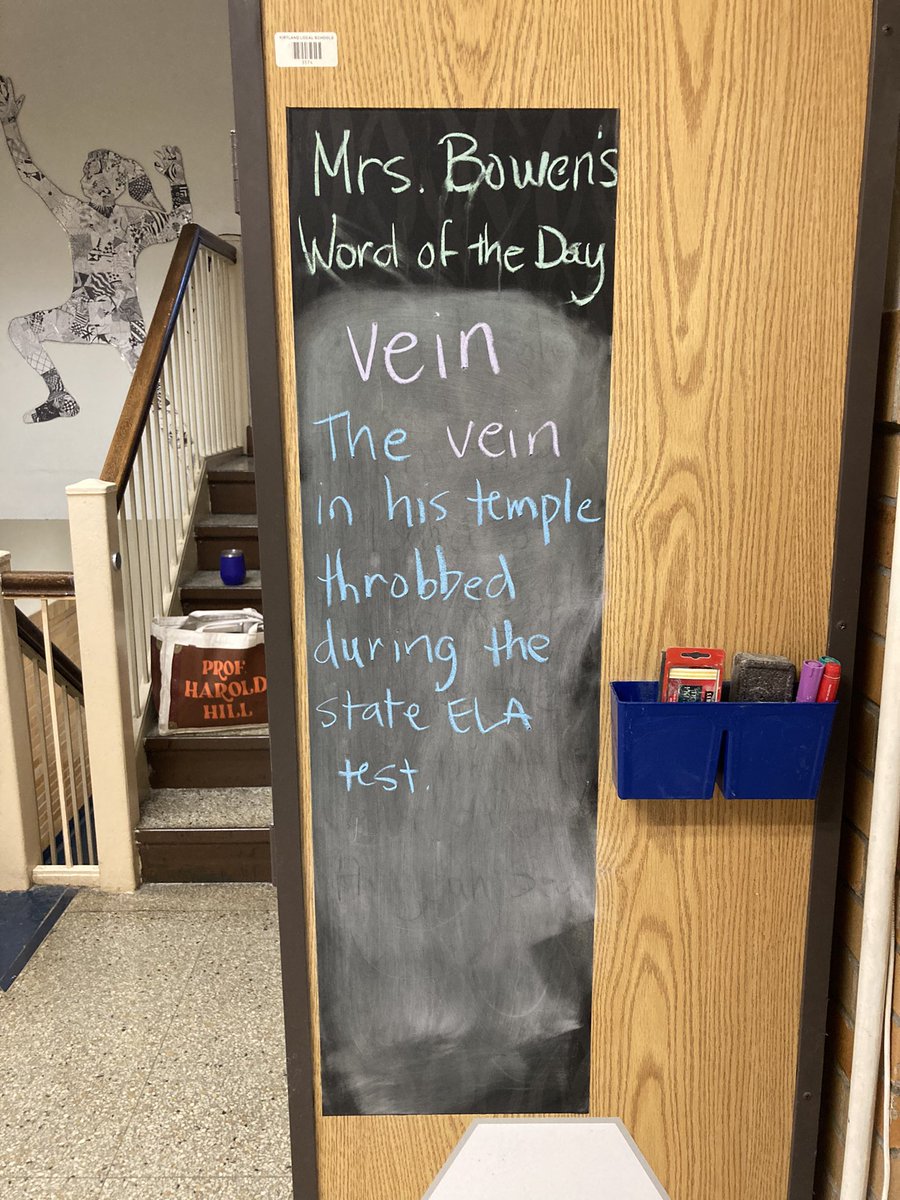 KIRTLAND LOCAL SCHOOLS
Mrs. Bowen's
Word of the Day
vein
The vein
in his temple
throbbed
during the
state ELA
test.
PROF
HAROLD
HILL